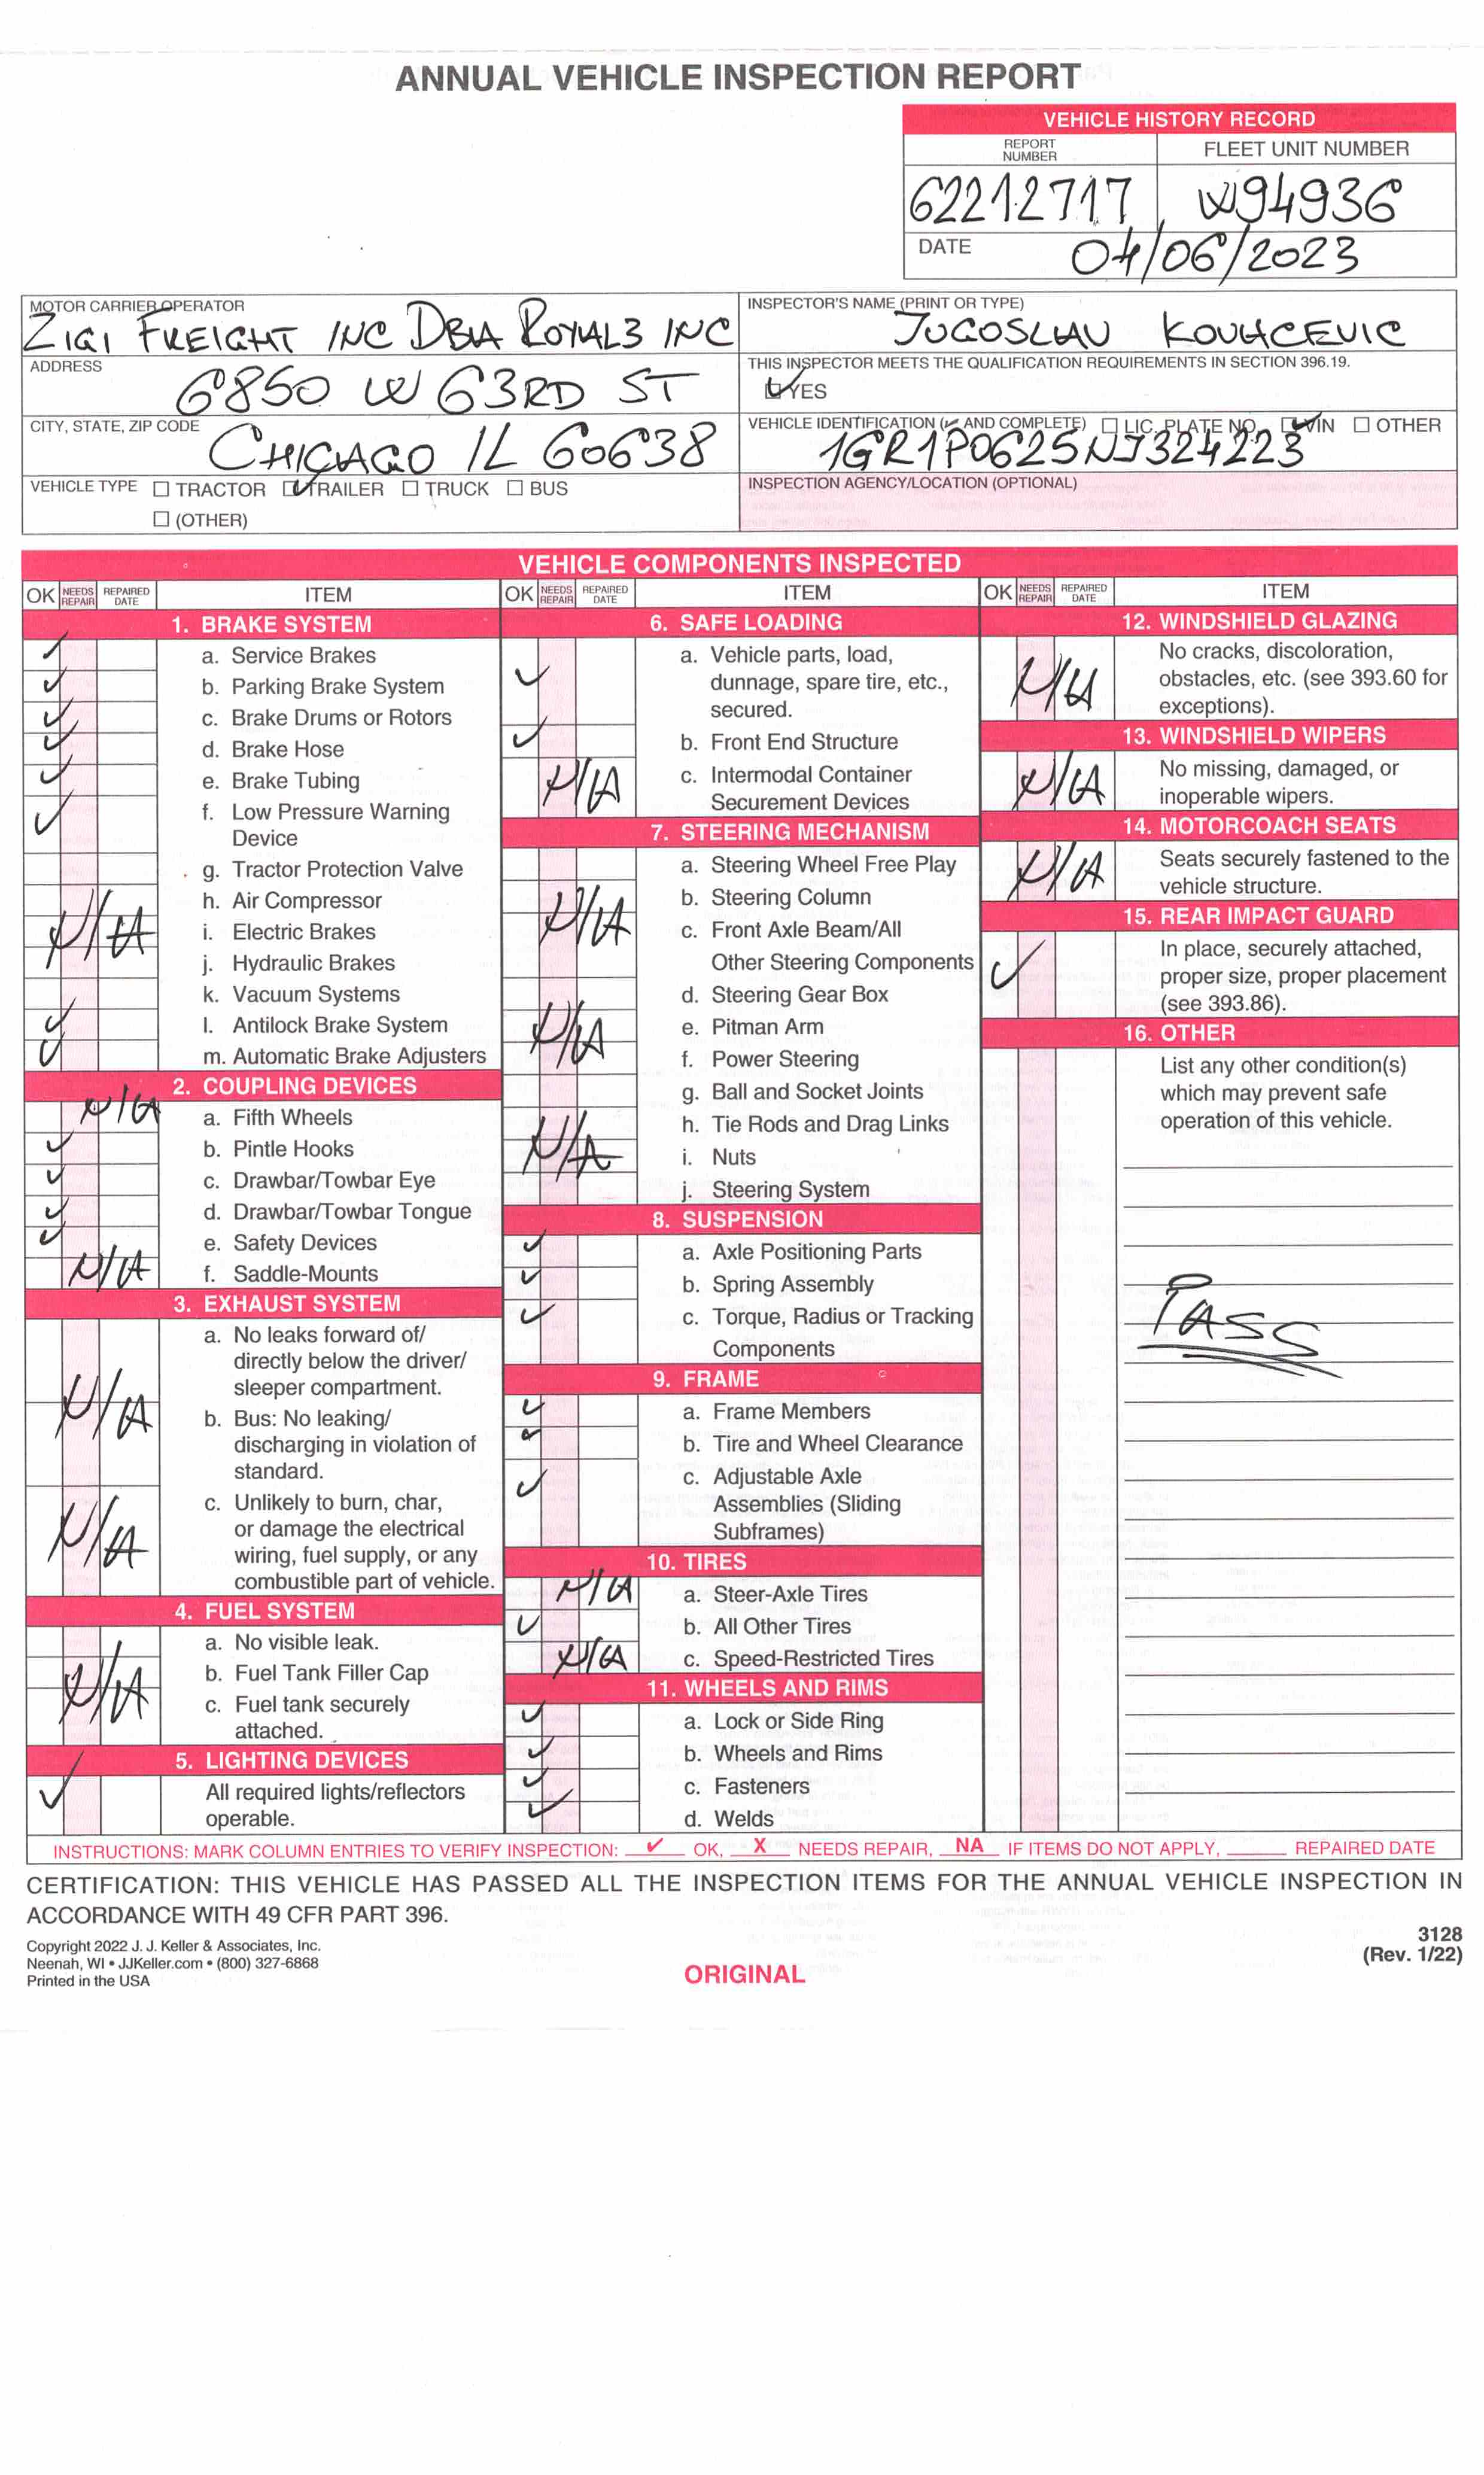 ANNUAL VEHICLE INSPECTION REPORT
VEHICLE HISTORY RECORD
REPORT NUMBER
FLEET UNIT NUMBER
62212717
W94936
DATE
04/06/2023
MOTOR CARRIER OPERATOR
ZIGI FREIGHT INC DBA ROYAL3 INC
INSPECTOR'S NAME (PRINT OR TYPE)
JUGOSLAV KOVACEVIC
ADDRESS
6850 W 63RD ST
THIS INSPECTOR MEETS THE QUALIFICATION REQUIREMENTS IN SECTION 396.19.
☑ YES
CITY, STATE, ZIP CODE
CHICAGO IL 60638
VEHICLE IDENTIFICATION (✓ AND COMPLETE) ☐ LIC. PLATE NO. ☑ VIN ☐ OTHER
1GR1P0625NJ324223
VEHICLE TYPE ☐ TRACTOR ☑ TRAILER ☐ TRUCK ☐ BUS
☐ (OTHER)
INSPECTION AGENCY/LOCATION (OPTIONAL)
VEHICLE COMPONENTS INSPECTED
OK NEEDS REPAIR REPAIRED DATE ITEM
1. BRAKE SYSTEM
✓ a. Service Brakes
✓ b. Parking Brake System
✓ c. Brake Drums or Rotors
✓ d. Brake Hose
✓ e. Brake Tubing
✓ f. Low Pressure Warning
Device
g. Tractor Protection Valve
h. Air Compressor
N/A i. Electric Brakes
j. Hydraulic Brakes
k. Vacuum Systems
✓ l. Antilock Brake System
✓ m. Automatic Brake Adjusters
2. COUPLING DEVICES
N/A a. Fifth Wheels
✓ b. Pintle Hooks
✓ c. Drawbar/Towbar Eye
✓ d. Drawbar/Towbar Tongue
✓ e. Safety Devices
N/A f. Saddle-Mounts
3. EXHAUST SYSTEM
a. No leaks forward of/
directly below the driver/
sleeper compartment.
N/A b. Bus: No leaking/
discharging in violation of
standard.
N/A c. Unlikely to burn, char,
or damage the electrical
wiring, fuel supply, or any
combustible part of vehicle.
4. FUEL SYSTEM
a. No visible leak.
N/A b. Fuel Tank Filler Cap
c. Fuel tank securely
attached.
5. LIGHTING DEVICES
✓ All required lights/reflectors
operable.
OK NEEDS REPAIR REPAIRED DATE ITEM
6. SAFE LOADING
✓ a. Vehicle parts, load,
dunnage, spare tire, etc.,
secured.
✓ b. Front End Structure
N/A c. Intermodal Container
Securement Devices
7. STEERING MECHANISM
a. Steering Wheel Free Play
b. Steering Column
N/A c. Front Axle Beam/All
Other Steering Components
d. Steering Gear Box
N/A e. Pitman Arm
f. Power Steering
g. Ball and Socket Joints
h. Tie Rods and Drag Links
N/A i. Nuts
j. Steering System
8. SUSPENSION
✓ a. Axle Positioning Parts
✓ b. Spring Assembly
✓ c. Torque, Radius or Tracking
Components
9. FRAME
✓ a. Frame Members
✓ b. Tire and Wheel Clearance
✓ c. Adjustable Axle
Assemblies (Sliding
Subframes)
10. TIRES
N/A a. Steer-Axle Tires
✓ b. All Other Tires
N/A c. Speed-Restricted Tires
11. WHEELS AND RIMS
✓ a. Lock or Side Ring
✓ b. Wheels and Rims
✓ c. Fasteners
✓ d. Welds
OK NEEDS REPAIR REPAIRED DATE ITEM
12. WINDSHIELD GLAZING
N/A No cracks, discoloration,
obstacles, etc. (see 393.60 for
exceptions).
13. WINDSHIELD WIPERS
N/A No missing, damaged, or
inoperable wipers.
14. MOTORCOACH SEATS
N/A Seats securely fastened to the
vehicle structure.
15. REAR IMPACT GUARD
✓ In place, securely attached,
proper size, proper placement
(see 393.86).
16. OTHER
List any other condition(s)
which may prevent safe
operation of this vehicle.
PASS
INSTRUCTIONS: MARK COLUMN ENTRIES TO VERIFY INSPECTION: ✓ OK, X NEEDS REPAIR, NA IF ITEMS DO NOT APPLY, ____ REPAIRED DATE
CERTIFICATION: THIS VEHICLE HAS PASSED ALL THE INSPECTION ITEMS FOR THE ANNUAL VEHICLE INSPECTION IN
ACCORDANCE WITH 49 CFR PART 396.
Copyright 2022 J. J. Keller & Associates, Inc.
Neenah, WI • JJKeller.com • (800) 327-6868
Printed in the USA
ORIGINAL
3128
(Rev. 1/22)